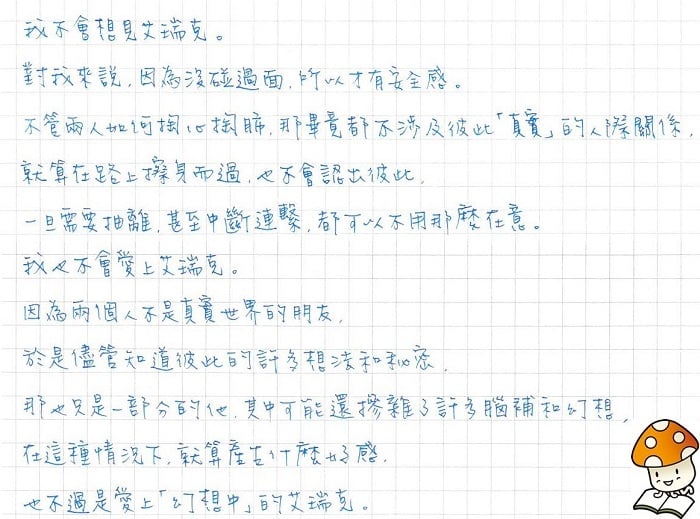 我不會想見艾瑞克。
對我來說，因為沒碰過面，所以才有安全感。
不管兩人如何掏心掏肺，那畢竟都不涉及彼此「真實」的人際關係，
就算在路上擦身而過，也不會認出彼此，
一旦需要抽離，甚至中斷連繫，都可以不用那麼在意。
我也不會愛上艾瑞克。
因為兩個人不是真實世界的朋友，
於是儘管知道彼此的許多想法和秘密，
那也只是一部分的他，其中可能還摻雜了許多腦補和幻想，
在這種情況下，就算產生什麼好感，
也不過是愛上「幻想中」的艾瑞克。